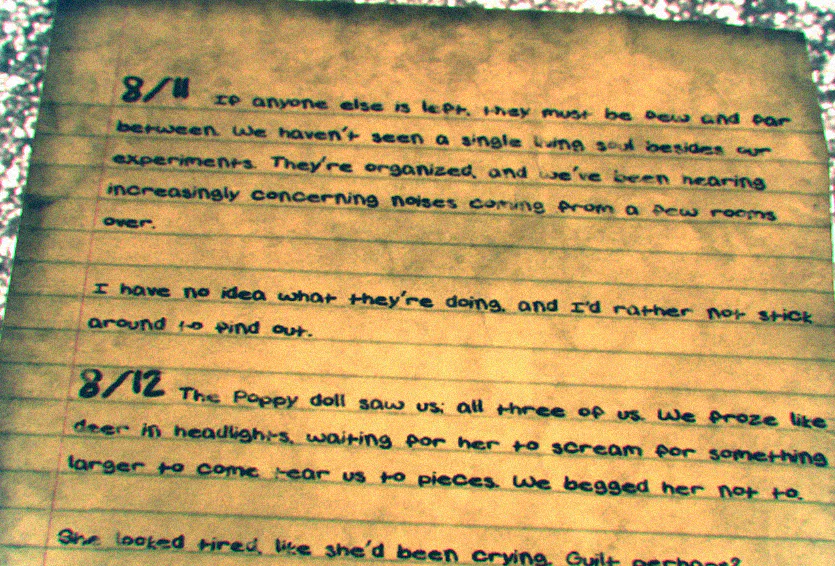 8/11 If anyone else is left, they must be few and far
between. We haven't seen a single living soul besides our
experiments. They're organized, and we've been hearing
increasingly concerning noises coming from a few rooms
over.
I have no idea what they're doing, and I'd rather not stick
around to find out.
8/12 The Poppy doll saw us; all three of us. We froze like
deer in headlights, waiting for her to scream for something
larger to come tear us to pieces. We begged her not to.
She looked tired, like she'd been crying. Guilt perhaps?